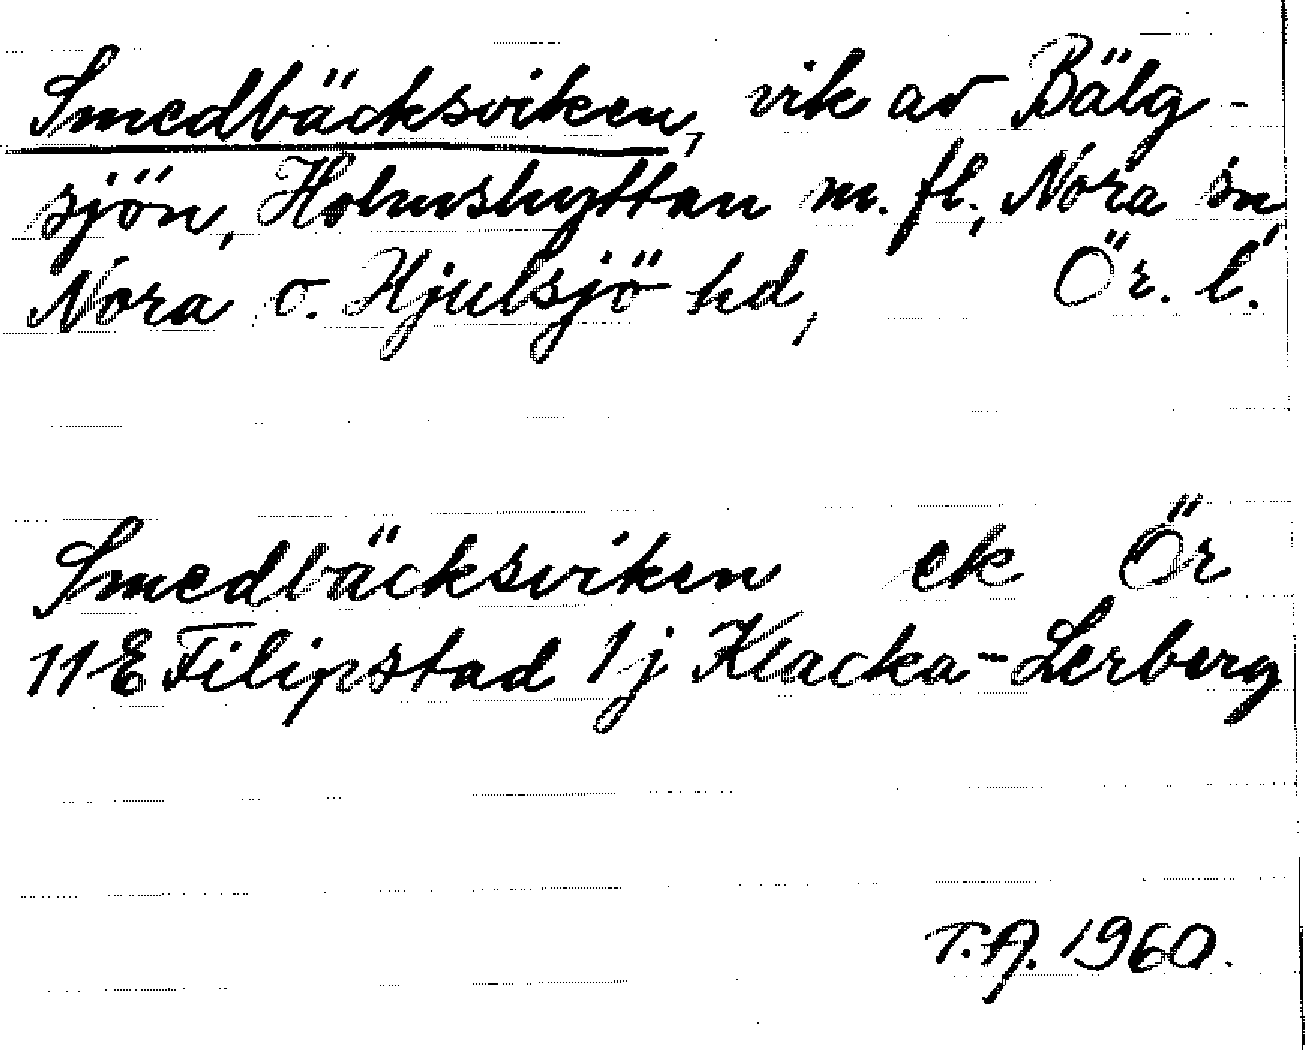 Smedbäcksviken, vik av Bälg-
sjön, Holmshyttan m. fl., Nora sn,
Nora o. Hjulsjö hd, Ör. l.
Smedbäcksviken ek Ör
11E Filipstad 1j Klacka-Lerberg
T.A. 1960.